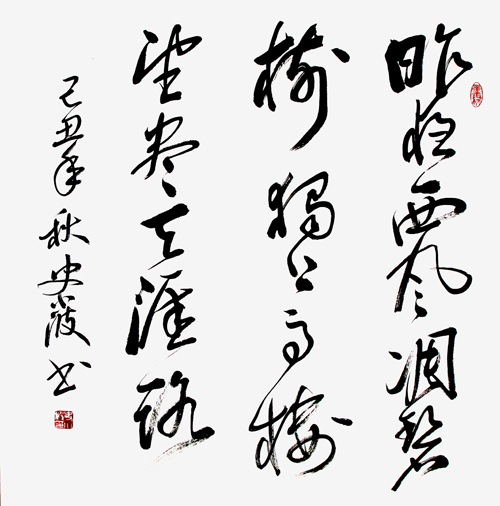 昨夜西風凋碧
樹獨上高樓
望尽天涯路
己丑年秋史书